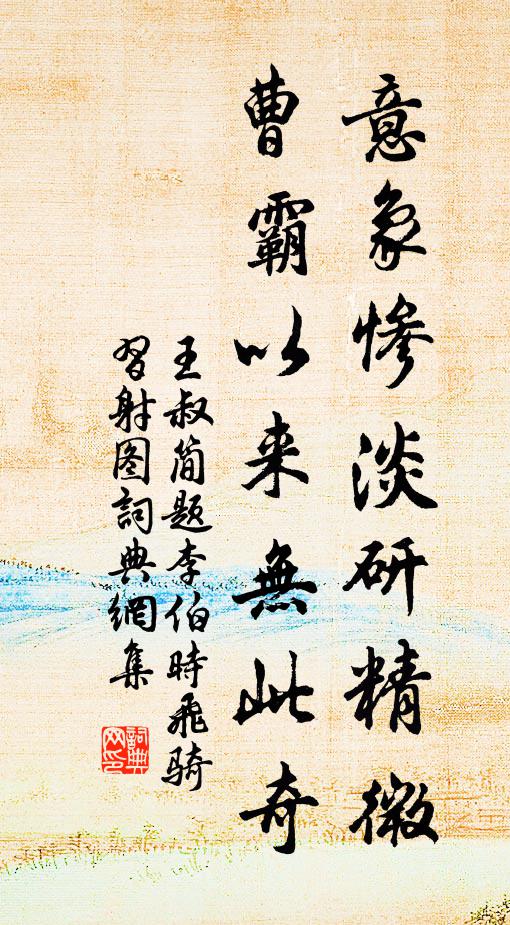 意象惨淡研精微
曹霸以来無此奇
王叔简题李伯時飛骑
習射图詞典網集
詞典網印